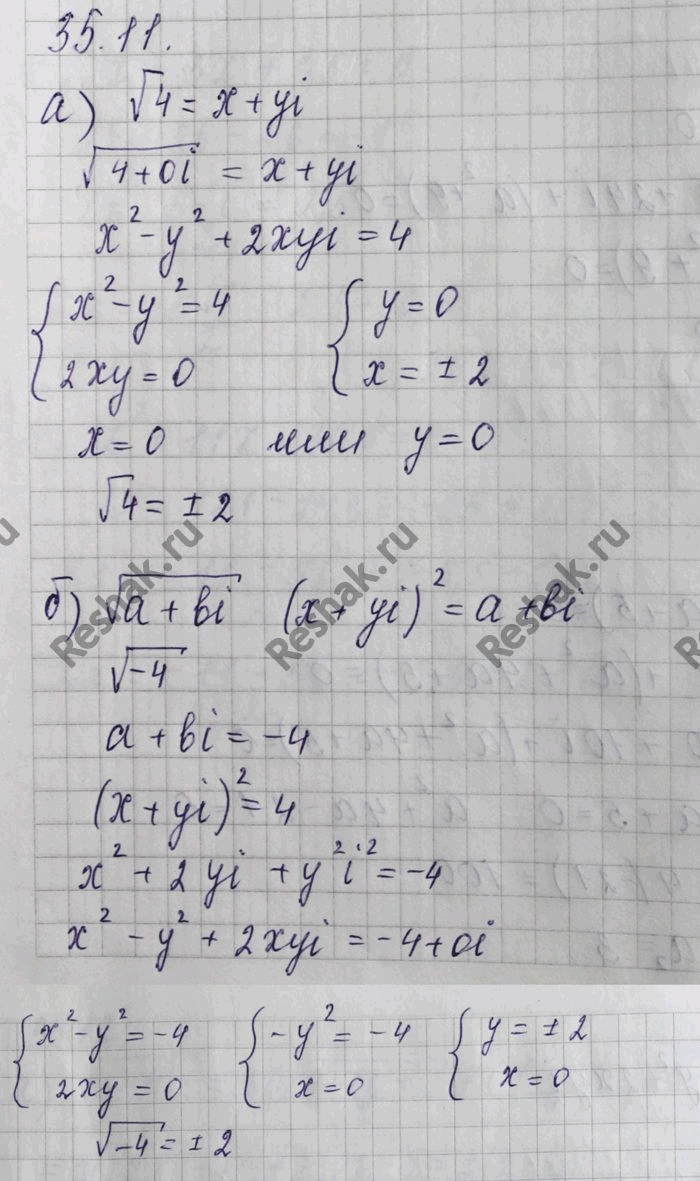 35.11.
а) √4 = x + yi
√(4+0i) = x + yi
x² - y² + 2xyi = 4
{ x² - y² = 4 { y = 0
{ 2xy = 0 { x = ± 2
x = 0 или y = 0
√4 = ± 2
б) √(a + bi) (x + yi)² = a + bi
√-4
a + bi = -4
(x + yi)² = 4
x² + 2yi + y²i² = -4
x² - y² + 2xyi = -4 + 0i
{ x² - y² = -4 { -y² = -4 { y = ± 2
{ 2xy = 0 { x = 0 { x = 0
√-4 = ± 2
Reshak.ru
Reshak.ru
Reshak.ru